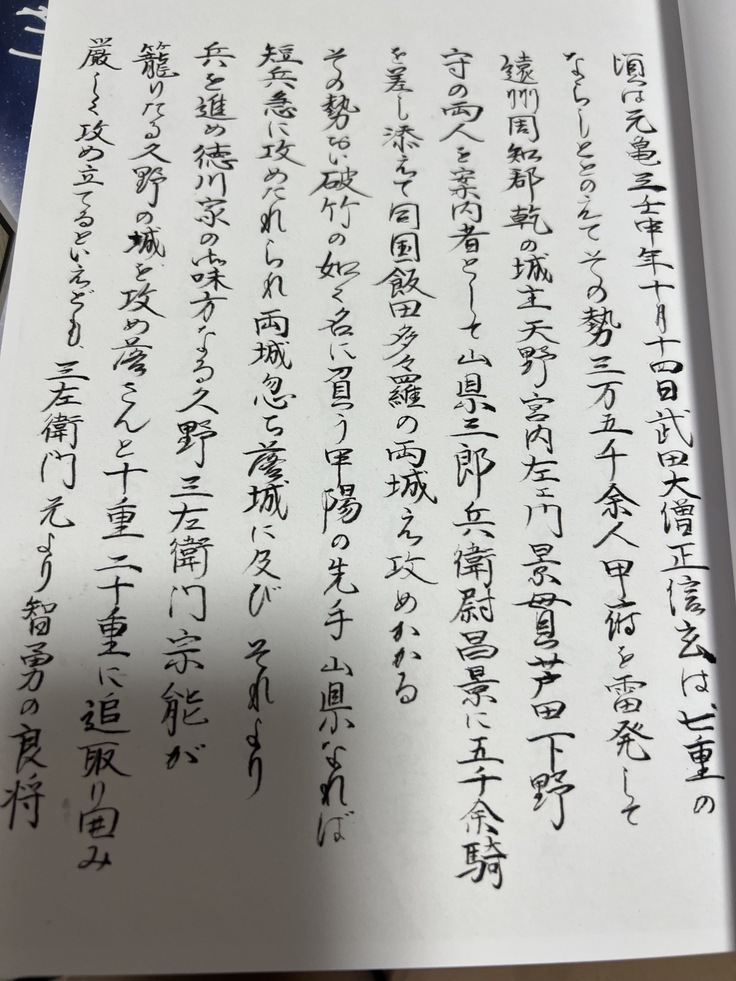 頃は元亀三壬申年十月十四日武田大僧正信玄は七重の
ならしととのえてその勢三万五千余人甲府を雷発して
遠州周知郡乾の城主天野宮内左ヱ門景貫芦田下野
守の両人を案内者として山県三郎兵衛尉昌景に五千余騎
を差し添えて同国飯田多々羅の両城え攻めかかる
その勢い破竹の如く名に負う甲陽の先手山県なれば
短兵急に攻めたれられ両城忽ち落城に及びそれより
兵を進め徳川家の御味方なる久野三左衛門宗能が
籠りたる久野の城を攻め落さんと十重二十重に追取り囲み
厳しく攻め立てるといえども、三左衛門元より智勇の良将